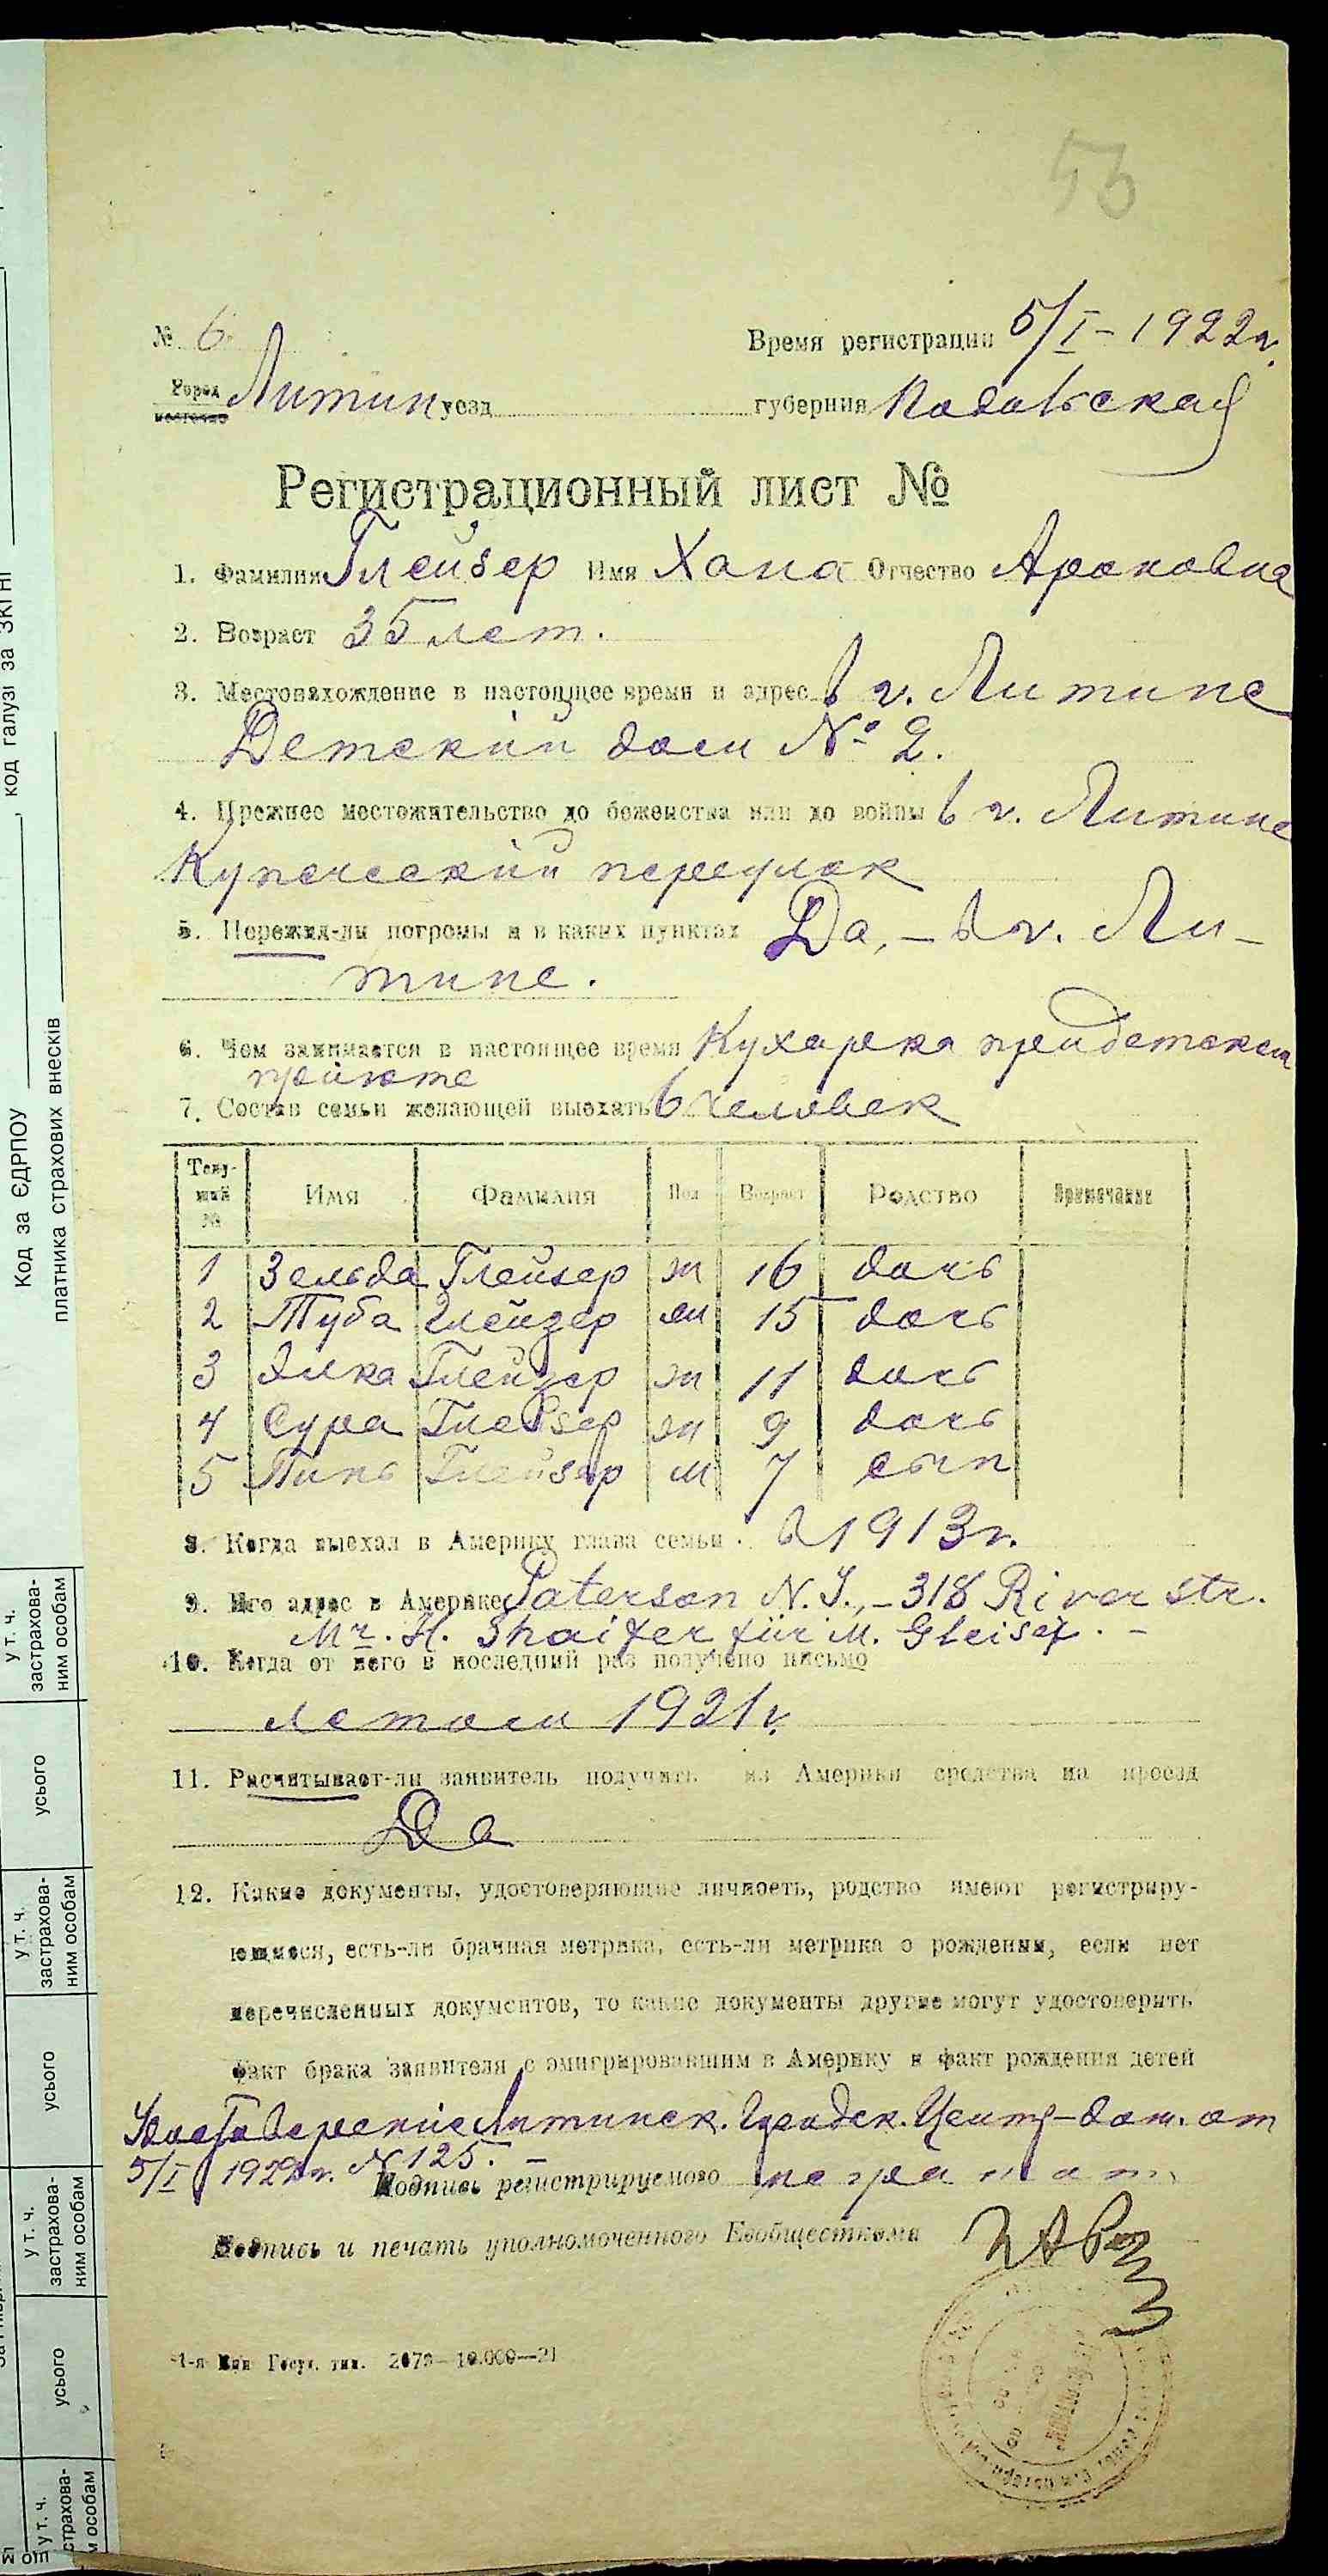 56
№ 6.
Время регистрации 5/I – 1922 г.
Город
местечко Литин уезд губерния Подольская
Регистрационный лист №
1. Фамилия Глейзер Имя Хана Отчество Ароновна
2. Возраст 35 лет.
3. Местонахождение в настоящее время и адрес в г. Литине
Детский дом № 2.
4. Прежнее местожительство до беженства или до войны в г. Литине
Купеческий переулок
5. Пережил-ли погромы и в каких пунктах Да, – в г. Ли–
тине.
6. Чем занимается в настоящее время Кухарка при детском
приюте
7. Состав семьи желающей выехать 6 человек
Теку-щий № Имя Фамилия Пол Возраст Родство Примечание
1 Зельда Глейзер ж 16 дочь
2 Туба Глейзер ж 15 дочь
3 Элка Глейзер ж 11 дочь
4 Сура Глейзер ж 9 дочь
5 Пинь Глейзер м 7 сын
8. Когда выехал в Америку глава семьи . В 1913 г.
9. Его адрес в Америке Paterson N. J., – 318 River str.
Mr. H. Shaifer für M. Gleiser. –
10. Когда от него в последний раз получено письмо
летом 1921 г.
11. Расчитывает-ли заявитель получить из Америки средства на проезд
Да
12. Какие документы, удостоверяющие личность, родство имеют регистриру-
ющиеся, есть-ли брачная метрика, есть-ли метрика о рождении, если нет
перечисленных документов, то какие документы другие могут удостоверить
факт брака заявителя с эмигрировавшим в Америку и факт рождения детей
Удостоверение Литинск. от
5/I 1922 г. № 125. –
Подпись регистрируемого неграмот
Подпись и печать уполномоченного Евобщесткома
1-я Госуд. тип. 2673—10.000—21
Код за ЄДРПОУ , код галузі за ЗКГНГ
платника страхових внесків
у т. ч.
застрахова-
ним особам
усього
у т. ч.
застрахова-
ним особам
усього
у т. ч.
застрахова-
ним особам
усього
у т. ч.
страхова-
м особам